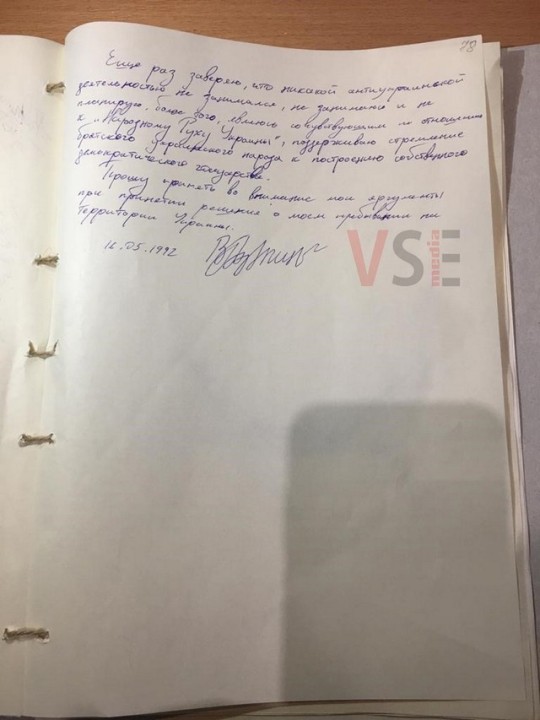 78
Еще раз заверяю, что никакой антиукраинской
деятельностью не занимался, не занимаюсь и не
планирую, более того, являюсь сочувствующим по отношению
к "Народному Руху Украины", поддерживаю стремление
братского украинского народа к построению собственного
демократического государства.
Прошу принять во внимание мои аргументы
при принятии решения о моем пребывании на
территории Украины.
12.05.1992
VSE
media